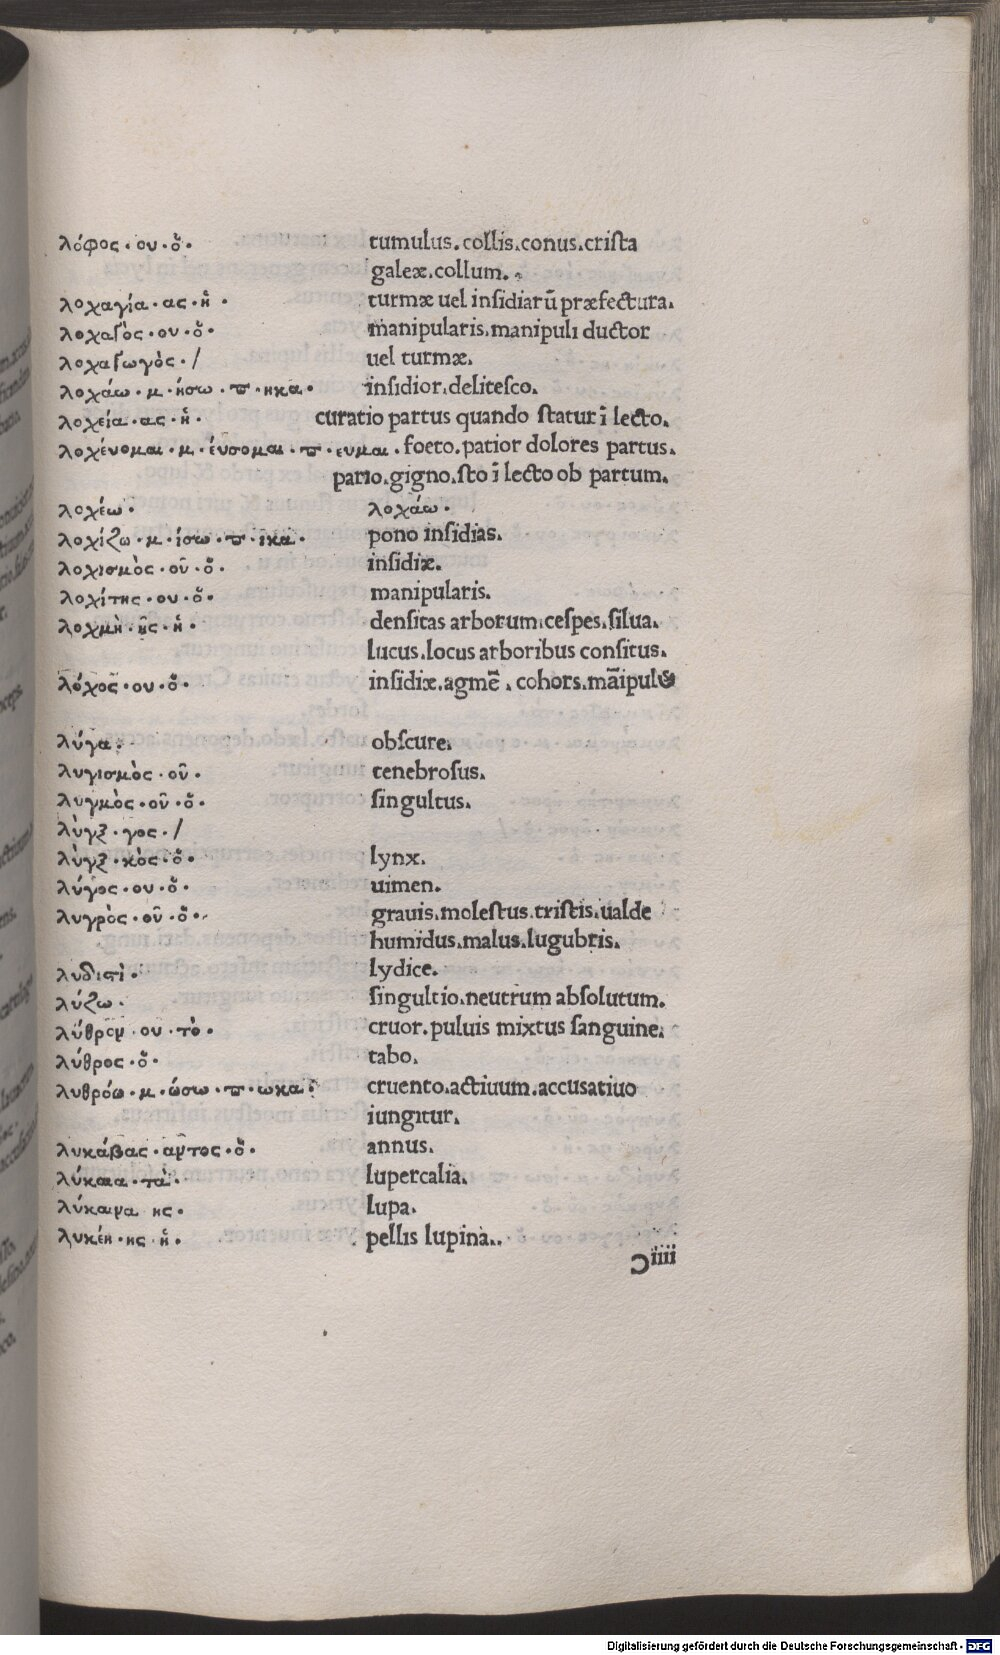 λόφος · ου · ὁ · tumulus. collis. conus. crista
galeæ. collum.
λοχαγία · ας · ἡ · turmæ uel insidiarū præfectura.
λοχαγὸς · ου · ὁ · manipularis. manipuli ductor
λοχαγωγὸς · / uel turmæ.
λοχάω · μ · ήσω · π · ηκα · insidior. delitesco.
λοχεία · ας · ἡ · curatio partus quando statur ī lecto.
λοχέυομαι · μ · έυσομαι · π · ευμαι · foeto. patior dolores partus.
pario. gigno. sto ī lecto ob partum.
λοχέω · λοχάω ·
λοχίζω · μ · ίσω · π · ικα · pono insidias.
λοχισμὸς · οῦ · ὁ · insidiæ.
λοχίτης · ου · ὁ · manipularis.
λοχμὴ · ῆς · ἡ · densitas arborum. cespes. silua.
lucus. locus arboribus consitus.
λόχος · ου · ὁ · insidiæ. agmē. cohors. māipul&
λύγα · obscure.
λυγισμὸς · οῦ · tenebrosus.
λυγμὸς · οῦ · ὁ · singultus.
λὺγξ · γος · /
λὺγξ · κὸς · ὁ · lynx.
λύγος · ου · ὁ · uimen.
λυγρὸς · οῦ · ὁ · grauis. molestus. tristis. ualde
humidus. malus. lugubris.
λυδιστὶ · lydice.
λύζω · singultio. neutrum absolutum.
λύθρον · ου · τὸ · cruor. puluis mixtus sanguine.
λύθρος · ὁ · tabo.
λυθρόω · μ · ώσω · π · ωκα · cruento. actiuum. accusatiuo
iungitur.
λυκάβας · αντος · ὁ · annus.
λύκαια · τὰ · lupercalia.
λύκαινα · ης · lupa.
λυκέη · ης · ἡ · pellis lupina.
Ɔ iiii
Digitalisierung gefördert durch die Deutsche Forschungsgemeinschaft - DFG